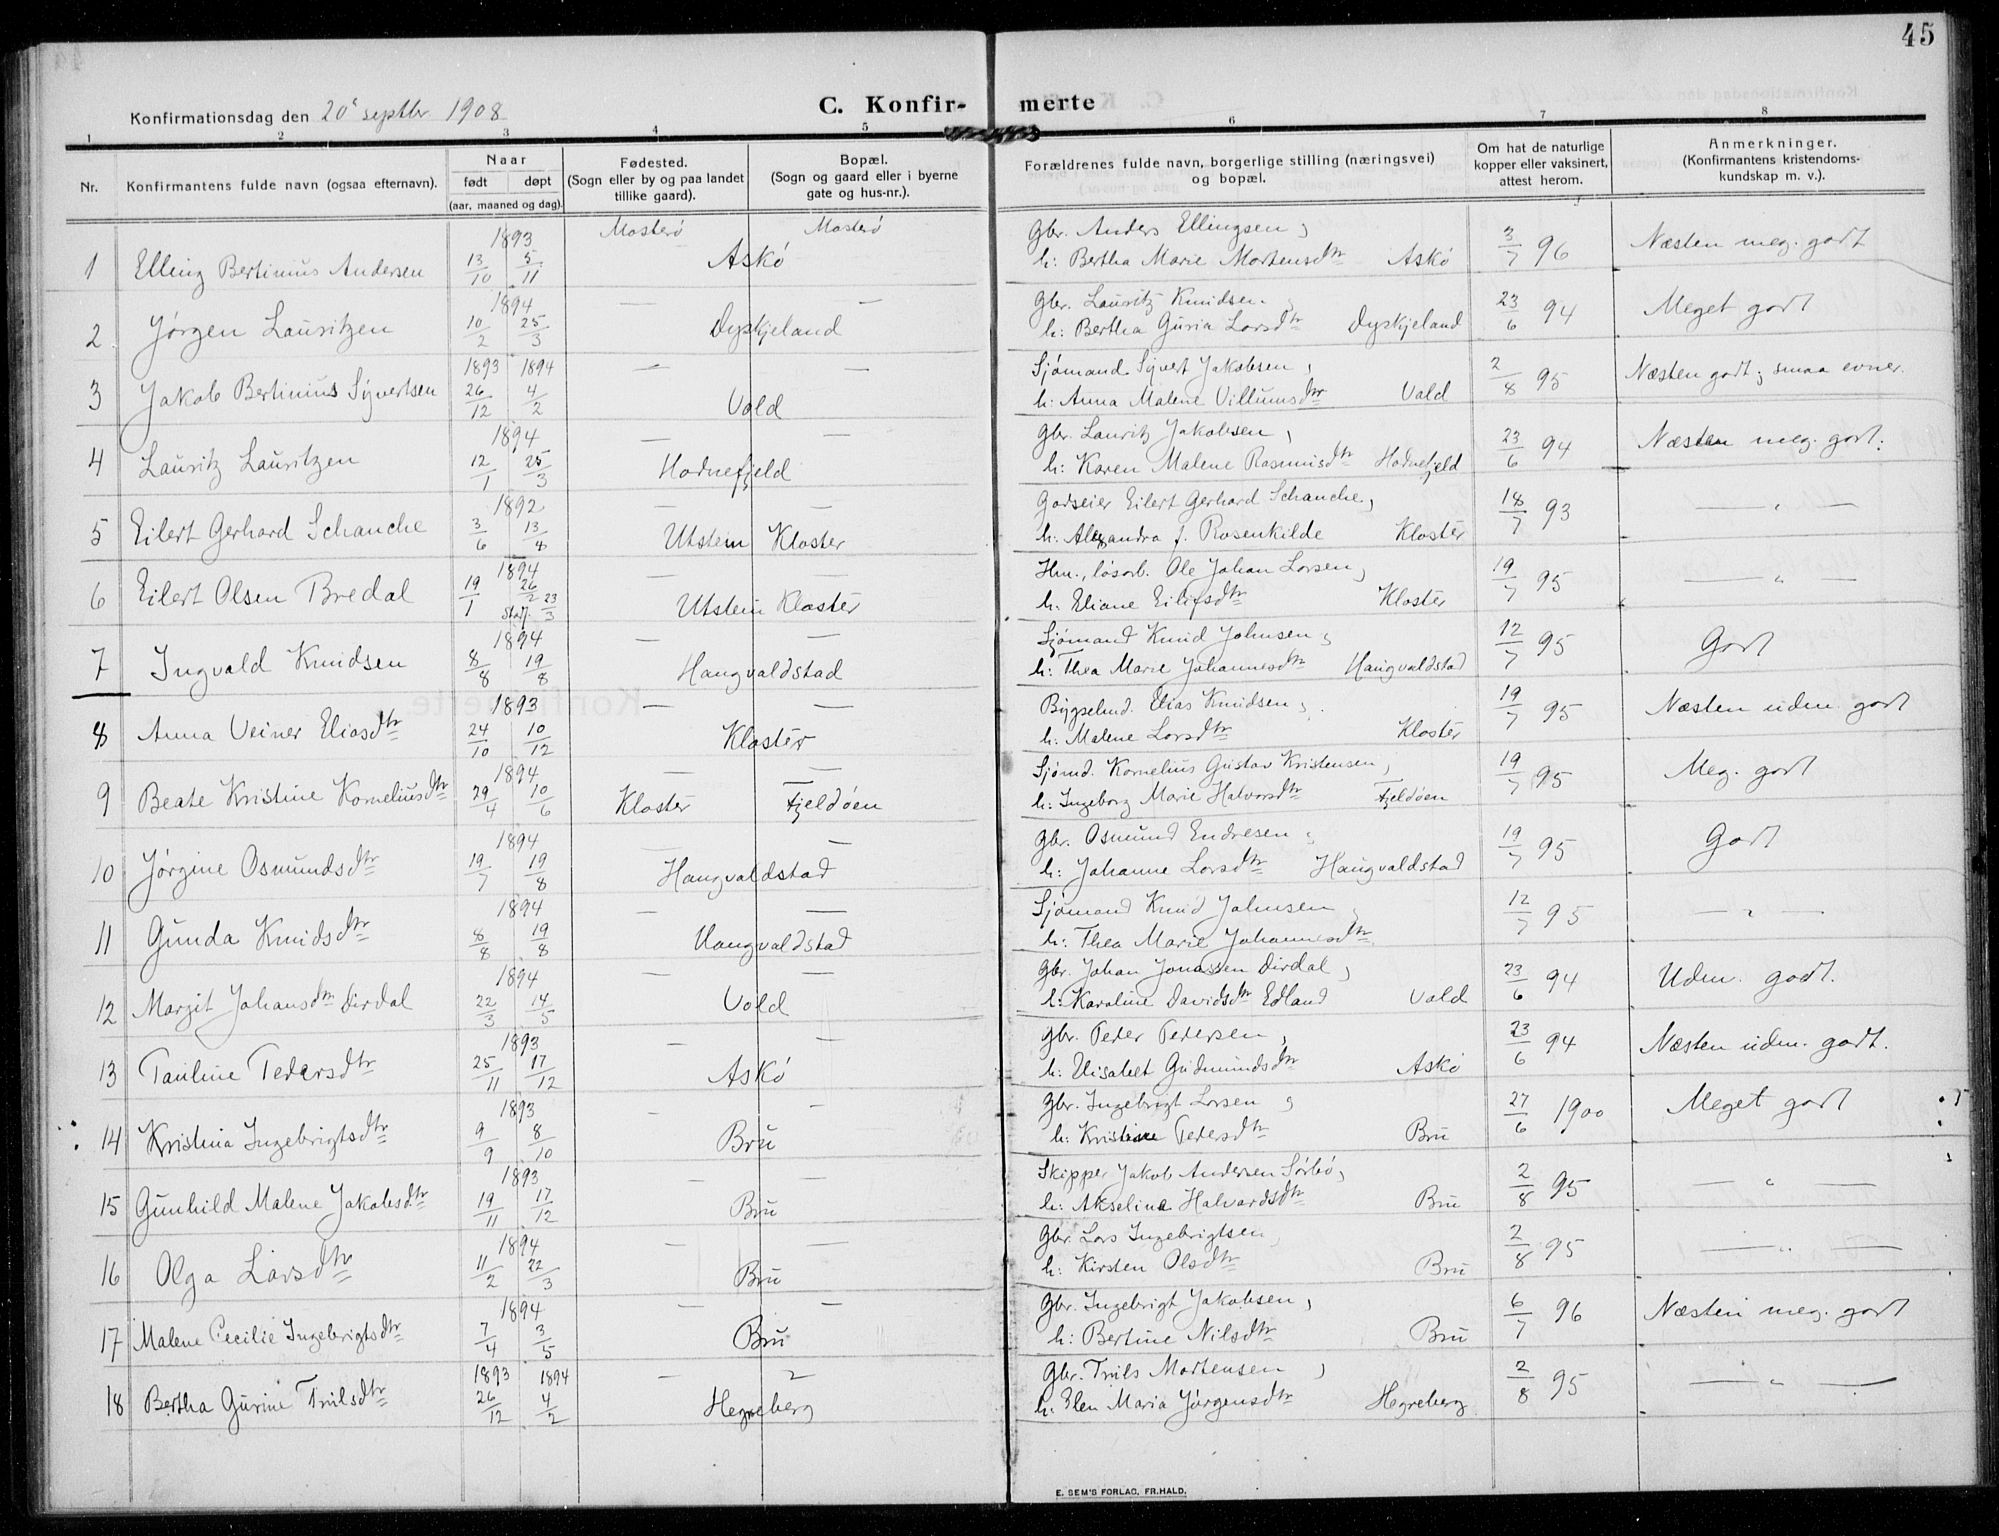 45
Konfirmationsdag den 20de septbr 1908
C. Konfirmerte
1 2 3 4 5 6 7 8
Nr.
Konfirmantens fulde navn (ogsaa efternavn).
Naar
født døpt
(aar, maaned og dag).
Fødested.
(Sogn eller by og paa landet
tillike gaard).
Bopæl.
(Sogn og gaard eller i byerne
gate og hus-nr.).
Forældrenes fulde navn, borgerlige stilling (næringsvei)
og bopæl.
Om hat de naturlige
kopper eller vaksinert,
attest herom.
Anmerkninger.
(Konfirmantens kristendoms-
kundskap m. v.).
1893 Mosterö Mosterö Gbr. Anders Ellingsen,
1 Elling Bertinius Andersen 13/10 5/11 Askö h: Bertha Marie Mortensdtr Askö 3/7 96 Næsten meg. godt
1894 — — Gbr. Lauritz Knudsen,
2 Jørgen Lauritzen 10/2 25/3 Dyskjeland h: Bertha Guria Larsdtr Dyskjeland 23/6 94 Meget godt
1893 1894 — — Sjømand Sivert Jakobsen,
3 Jakob Bertinius Sivertsen 26/12 4/2 Vold h: Anna Malene Villumsdtr Vold 2/8 95 Næsten godt; smaa evner.
1894 — — Gbr. Lauritz Jakobsen,
4 Lauritz Lauritzen 12/1 25/3 Hodnefjeld h: Karen Malene Rasmusdtr Hodnefjeld 23/6 94 Næsten meg. godt.
1892 — — Godseier Eilert Gerhard Schanche,
5 Eilert Gerhard Schanche 3/6 13/8 Utstein Kloster h: Alexandra f. Rosenkilde Kloster 18/7 93 — " —
1894 — — Hm., løsarb. Ole Johan Larsen,
6 Eilert Olsen Bredal 19/1 26/2 stadf. 23/3 Utstein Kloster h: Eliane Eilifsdtr Kloster 19/7 95 — " —
1894 — — Sjømand Knud Johnsen,
7 Ingvald Knudsen 8/8 19/8 Haugvaldstad h: Thea Marie Johannesdtr Haugvaldstad 12/7 95 Godt
1893 — — Bygselmd. Elias Knudsen,
8 Anna Veiner Eliasdtr 24/10 10/12 Kloster h: Malene Larsdtr Kloster 19/7 95 Næsten udm. godt
1894 — — Sjømd. Kornelius Gustav Kristensen,
9 Beate Kristine Korneliusdtr 29/4 10/6 Kloster Fjeldöen h: Ingeborg Marie Halvorsdtr Fjeldöen 19/7 95 Meg. godt
1894 — — Gbr. Osmund Endresen,
10 Jørgine Osmundsdtr 19/7 19/8 Haugvaldstad h: Johanne Larsdtr Haugvaldstad 19/7 95 Godt
1894 — — Sjømand Knud Johnsen,
11 Gunda Knudsdtr 8/8 19/8 Haugvaldstad h: Thea Marie Johannesdtr 12/7 95 — " —
1894 — — Gbr. Johan Jonassen Dirdal,
12 Margit Johansdtr Dirdal 22/3 14/5 Vold h: Karoline Davidsdtr Edland Vold 23/6 94 Udm. godt.
1893 — — Gbr. Peder Pedersen,
13 Pauline Pedersdtr 25/11 17/12 Askö h: Elisabet Gudmundsdtr Askö 23/6 94 Næsten udm. godt.
1893 — — Gbr. Ingebrigt Larsen,
14 Kristina Ingebrigtsdtr 9/9 8/10 Bru h: Kristine Pedersdtr Bru 27/6 1900 Meget godt
1893 — — Skipper Jakob Andersen Sørbö,
15 Gunhild Malene Jakobsdtr 19/11 17/12 Bru h: Akseline Halvardsdtr Bru 2/8 95 — " —
1894 — — Gbr. Lars Ingebrigtsen,
16 Olga Larsdtr 11/2 22/3 Bru h: Kirsten Olsdtr Bru 2/8 95 — " —
1894 — — Gbr. Ingebrigt Jakobsen,
17 Malene Cecilie Ingebrigtsdtr 7/4 3/5 Bru h: Bertine Nilsdtr Bru 6/7 96 Næsten meg. godt
1893 1894 — — Gbr. Truls Mortensen,
18 Bertha Gurine Trulsdtr 26/12 4/2 Hegreberg h: Elen Maria Jørgensdtr Hegreberg 2/8 95 — " —
E. SEM'S FORLAG, FR.HALD.